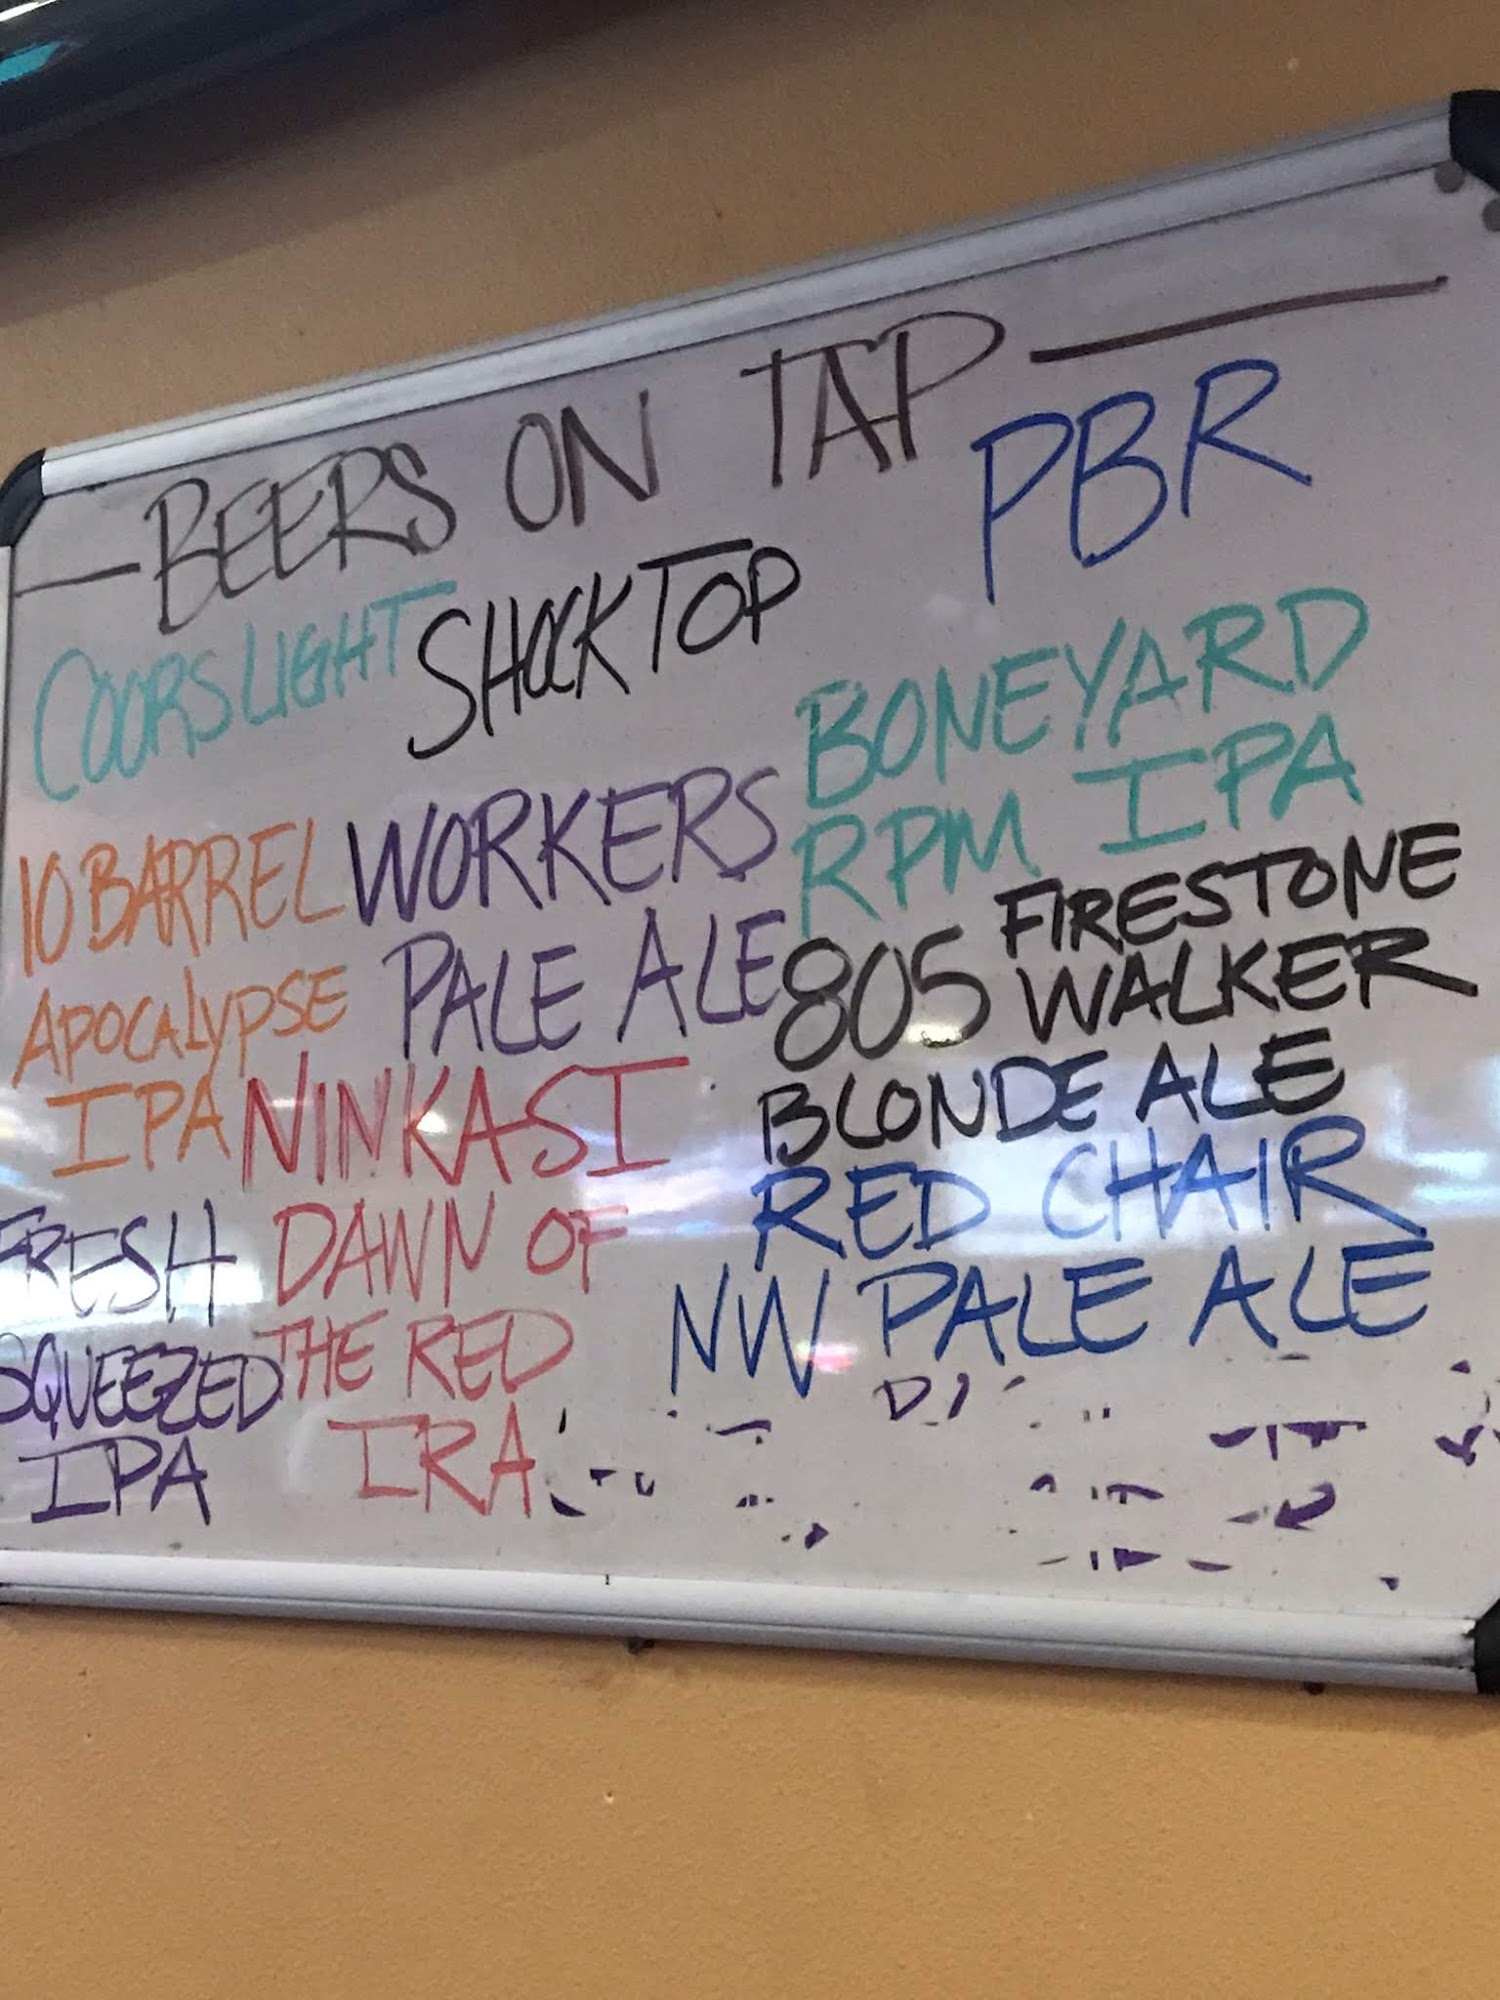 BEERS ON TAP
COORS LIGHT
SHOCK TOP
PBR
10 BARREL
APOCALYPSE
IPA
WORKERS
PALE ALE
BONEYARD
RPM IPA
805 FIRESTONE
WALKER
BLONDE ALE
FRESH
SQUEEZED
IPA
NINKASI
DAWN OF
THE RED
IRA
RED CHAIR
NW PALE ALE